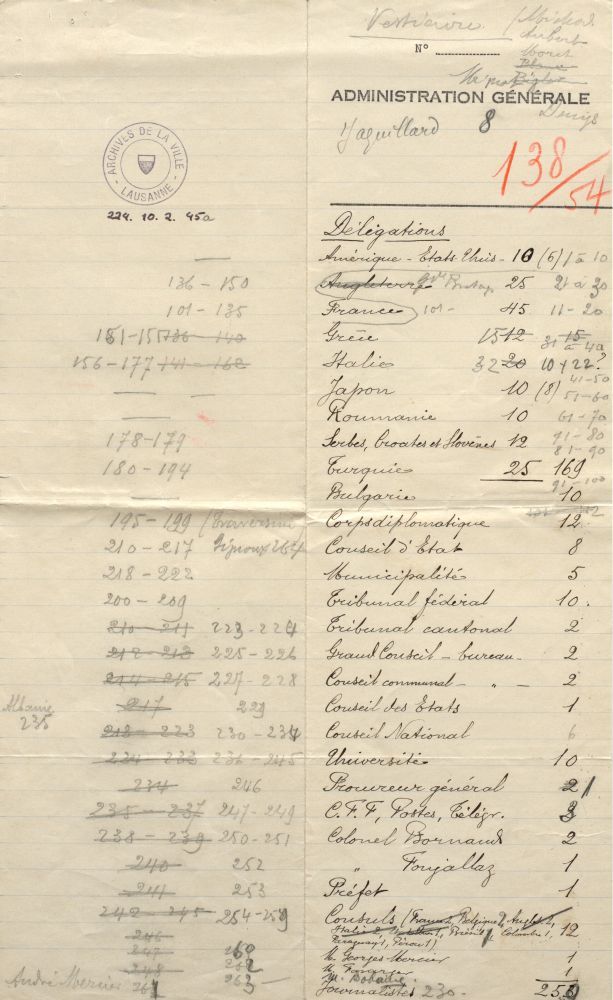 Vestiaire
Aubert
Moret
N°
ADMINISTRATION GÉNÉRALE
Jaquillard 8
Denys
138/54
ARCHIVES DE LA VILLE
LAUSANNE
224. 10. 2. 45a
Délégations
Amérique - Etats Unis - 10 (6) 1 à 10
136 - 150 Angleterre 25 21 à 30
101 - 135 France 101 - 45 11 - 20
151 - 155 136 - 140 Grèce 15 12 31 à 40
156 - 177 141 - 162 Italie 32 20 10 + 22?
Japon 10 (8) 41-50
51-60
Roumanie 10 61-70
178-179 Serbes, Croates et Slovènes 12 71-80
81-90
180 - 194 Turquie 25 169
91-100
Bulgarie 10
195 - 199 Corps diplomatique 12
210 - 217 Conseil d'Etat 8
218 - 222 Municipalité 5
200 - 209 Tribunal fédéral 10
210 - 211 223 - 224 Tribunal cantonal 2
212 - 213 225 - 226 Grand Conseil - bureau - 2
214 - 215 227 - 228 Conseil communal - " - 2
Albanie 235
217 229 Conseil des Etats 1
218 - 223 230 - 234 Conseil National 6
224 - 233 236 - 245 Université 10
234 246 Procureur général 2 1
235 - 237 247 - 249 C.F.F, Postes, Télégr. 3
238 - 239 250 - 251 Colonel Bornand 2
240 252 " Fonjallaz 1
241 253 Préfet 1
242 - 245 254 - 259 Consuls (France 2, Belgique 2, Anglet. 2, 12
Italie 2, Brésil 1, Colombie 1,
Paraguay 1, Pérou 1)
246
247 260 M. Georges Mercier 1
248 262 1
André Mercier 261 263
M. Bobadie 1
Journalistes 230 -